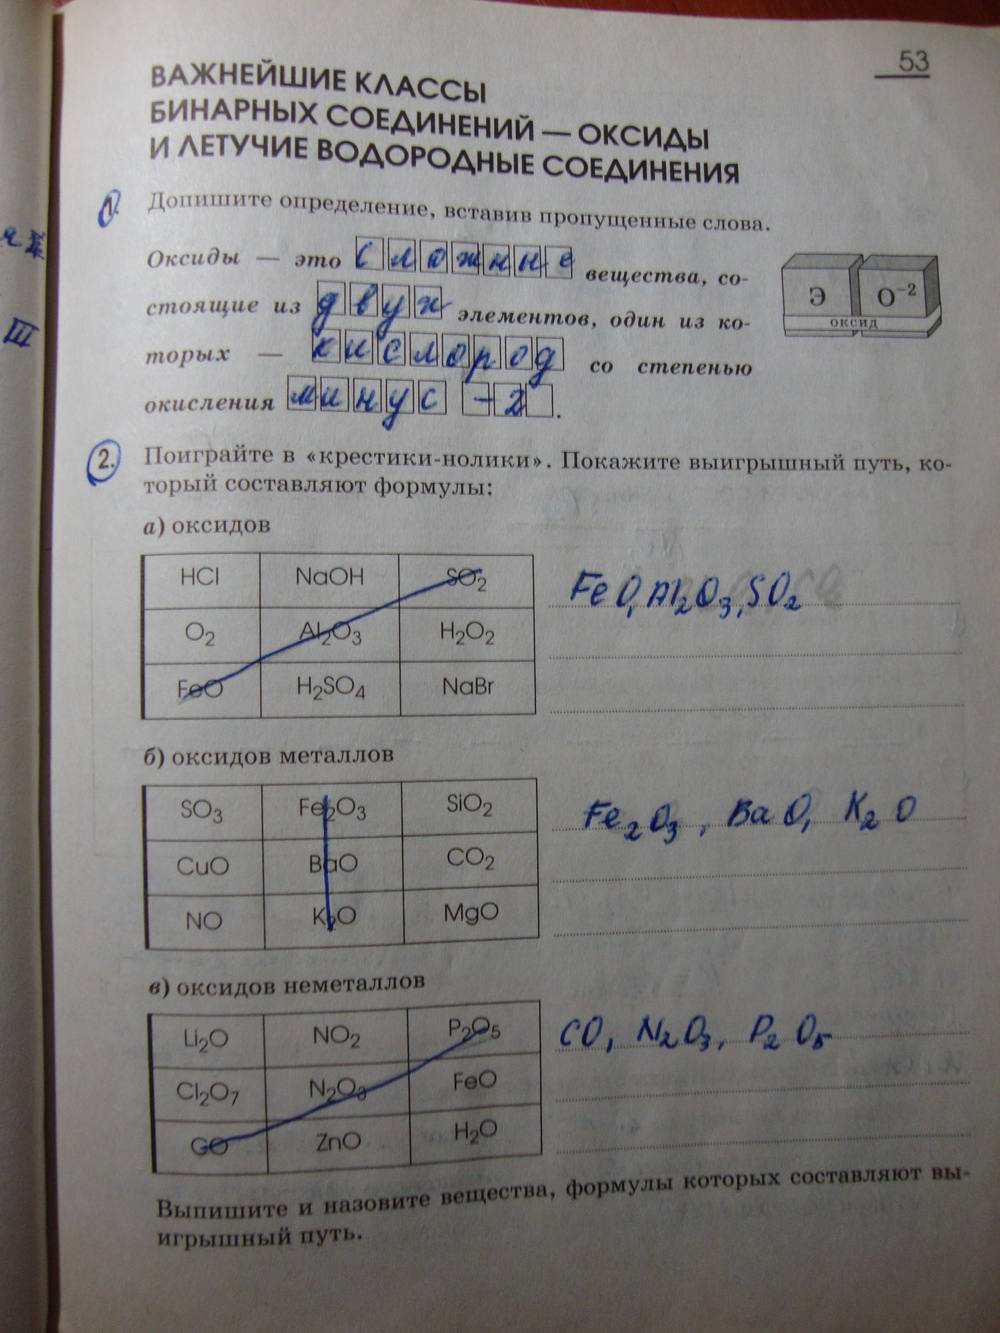 53
ВАЖНЕЙШИЕ КЛАССЫ
БИНАРНЫХ СОЕДИНЕНИЙ — ОКСИДЫ
И ЛЕТУЧИЕ ВОДОРОДНЫЕ СОЕДИНЕНИЯ
1. Допишите определение, вставив пропущенные слова.
Оксиды — это сложные вещества, со-
стоящие из двух элементов, один из ко-
торых — кислород со степенью
окисления минус -2.
Э O⁻²
ОКСИД
III
2. Поиграйте в «крестики-нолики». Покажите выигрышный путь, ко-
торый составляют формулы:
а) оксидов
HCl NaOH SO₂
FeO, Al₂O₃, SO₂
O₂ Al₂O₃ H₂O₂
FeO H₂SO₄ NaBr
б) оксидов металлов
SO₃ Fe₂O₃ SiO₂
Fe₂O₃, BaO, K₂O
CuO BaO CO₂
NO K₂O MgO
в) оксидов неметаллов
Li₂O NO₂ P₂O₅
CO, N₂O₃, P₂O₅
Cl₂O₇ N₂O₃ FeO
CO ZnO H₂O
Выпишите и назовите вещества, формулы которых составляют вы-
игрышный путь.